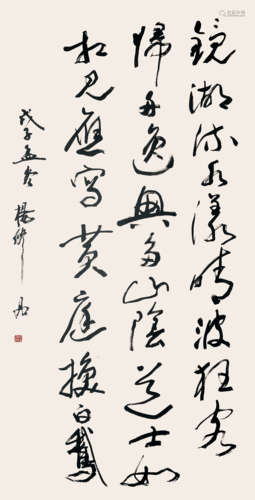 鏡湖流水漾晴波狂客
歸舟逸興多山陰道士如
相見應寫黃庭換白鵞
戊子孟冬楊